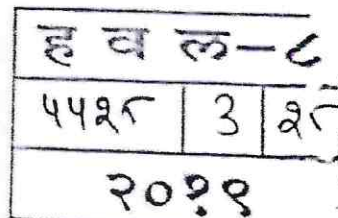 ह व ल-८
५५२८ 3 २८
२०१९